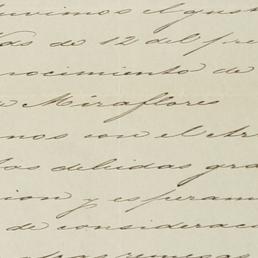 tuvimos el gust
das de 12 del pre
nocimiento de
Miraflores
nos con el Ar
las debidas gra
cion y esperam
de consideracio